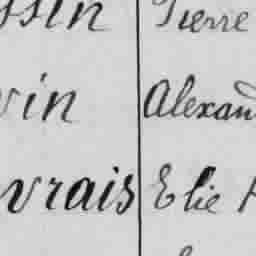 ssin Pierre
vin Alexan
vrais Elie